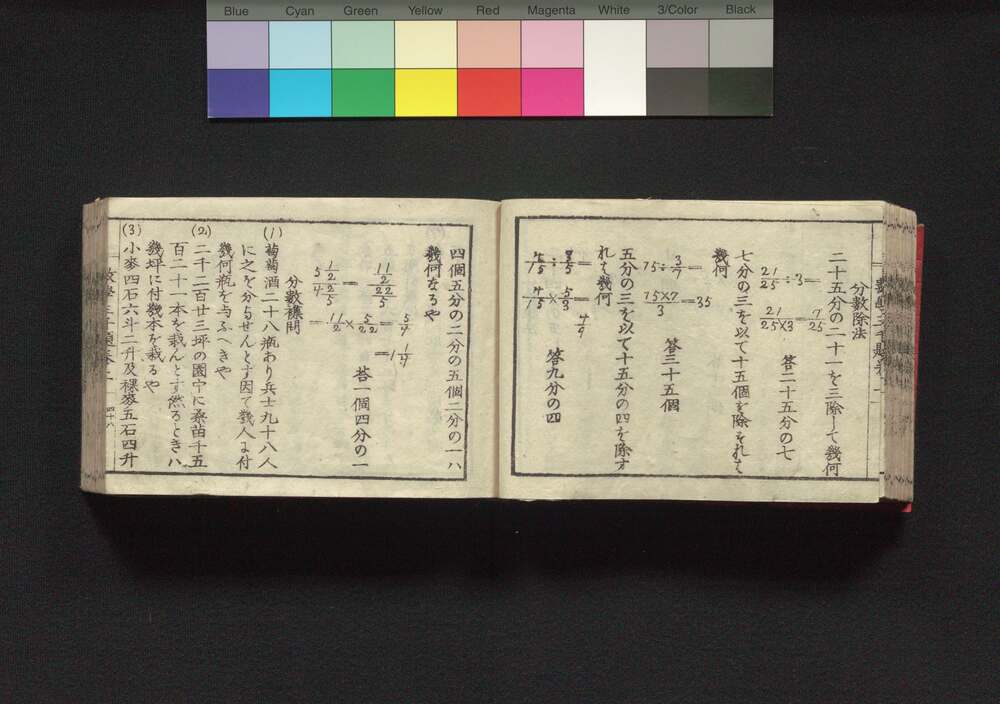 Blue Cyan Green Yellow Red Magenta White 3/Color Black
分數除法
二十五分の二十一を三除して幾何
21/25 ÷ 3 =
21/25×3 = 7/25
答二十五分の七
七分の三を以て十五個を除すれは
幾何
15 ÷ 3/7 =
15×7/3 = 35
答三十五個
五分の三を以て十五分の四を除す
れは幾何
4/15 ÷ 3/5 =
4/15 × 5/3 =
4/9
答九分の四
四個五分の二分の五個二分の一ハ
幾何なるや
5 1/2 / 4 2/5 = 11/2 / 22/5
= 11/2 × 5/22 = 5/4
= 1 1/4
答一個四分の一
分數襍問
(1) 葡萄酒二十八瓶あり兵士九十八人
に之を分与せんとす因て幾人に付
幾何瓶を与ふへきや
(2) 二千二百廿三坪の園中に桑苗千五
百二十一本を栽んとす然るときハ
幾坪に付幾本を栽るや
(3) 小麥四石六斗二升及裸麥五石四升